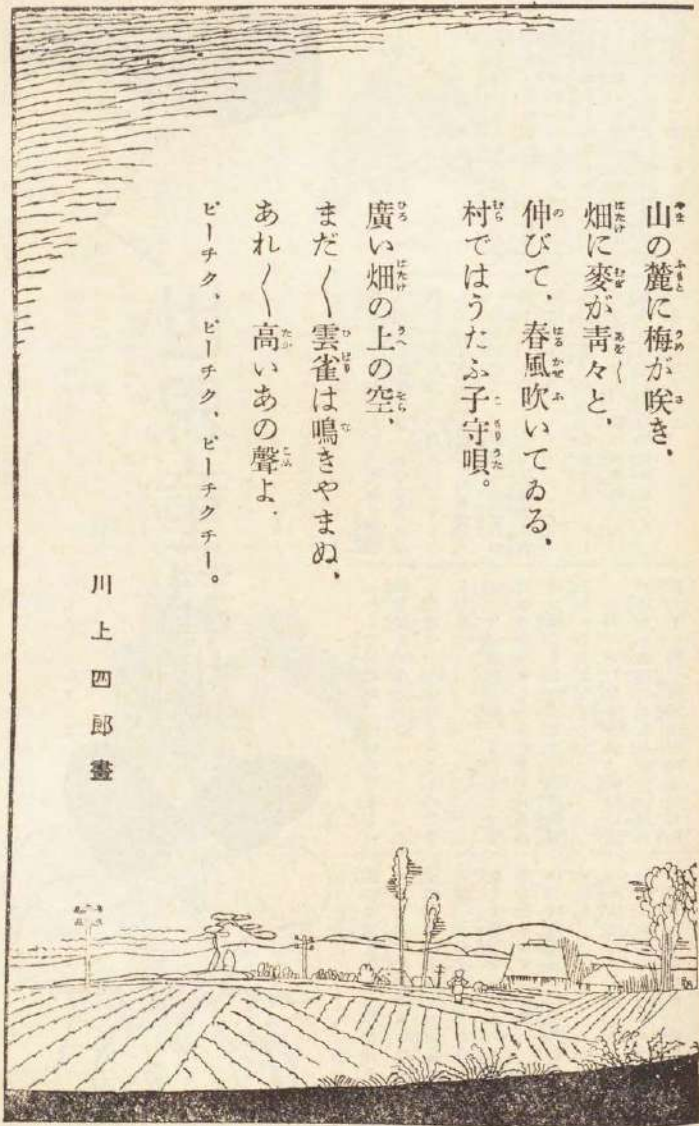 山の麓に梅が咲き、
畑に麥が靑々と、
伸びて、春風吹いてゐる、
村ではうたふ子守唄。
廣い畑の上の空、
まだ〱雲雀は鳴きやまぬ、
あれ〱高いあの聲よ、
ピーチク、ピーチク、ピーチクチー。
川上四郎畫